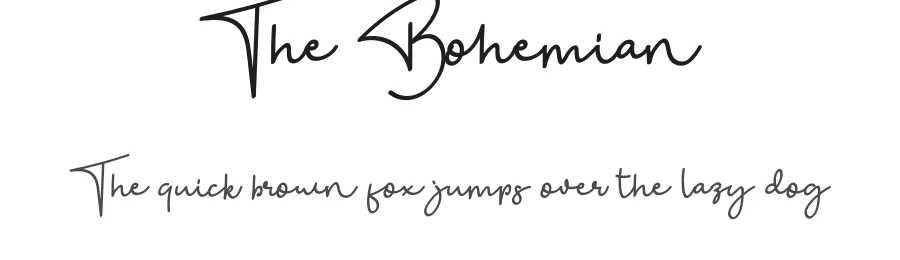 The Bohemian
The quick brown fox jumps over the lazy dog